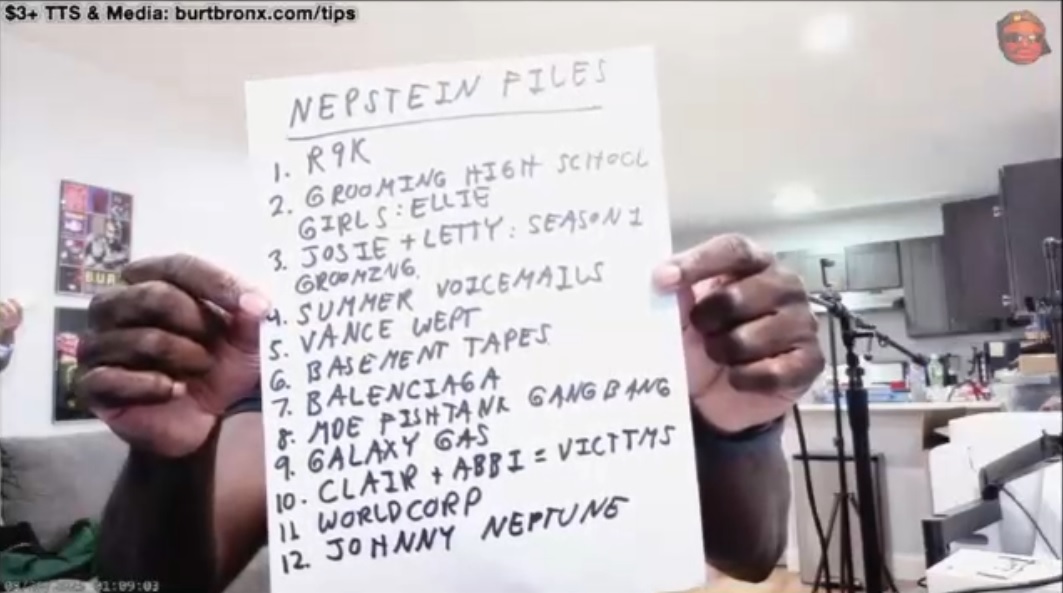 $3+ TTS & Media: burtbronx.com/tips
NEPSTEIN FILES
1. R9K
2. GROOMING HIGH SCHOOL
GIRLS: ELLIE
3. JOSIE + LETTY: SEASON 1
GROOMING.
4. SUMMER VOICEMAILS
5. VANCE WEPT
6. BASEMENT TAPES
7. BALENCIAGA
8. MDE PISHTANK GANGBANG
9. GALAXY GAS
10. CLAIR + ABBI = VICTTMS
11 WORLDCORP
12. JOHNNY NEPTUNE
BUR
01:09:03